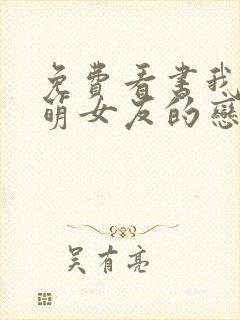 免費看書我
萌女友的戀
吴有亮